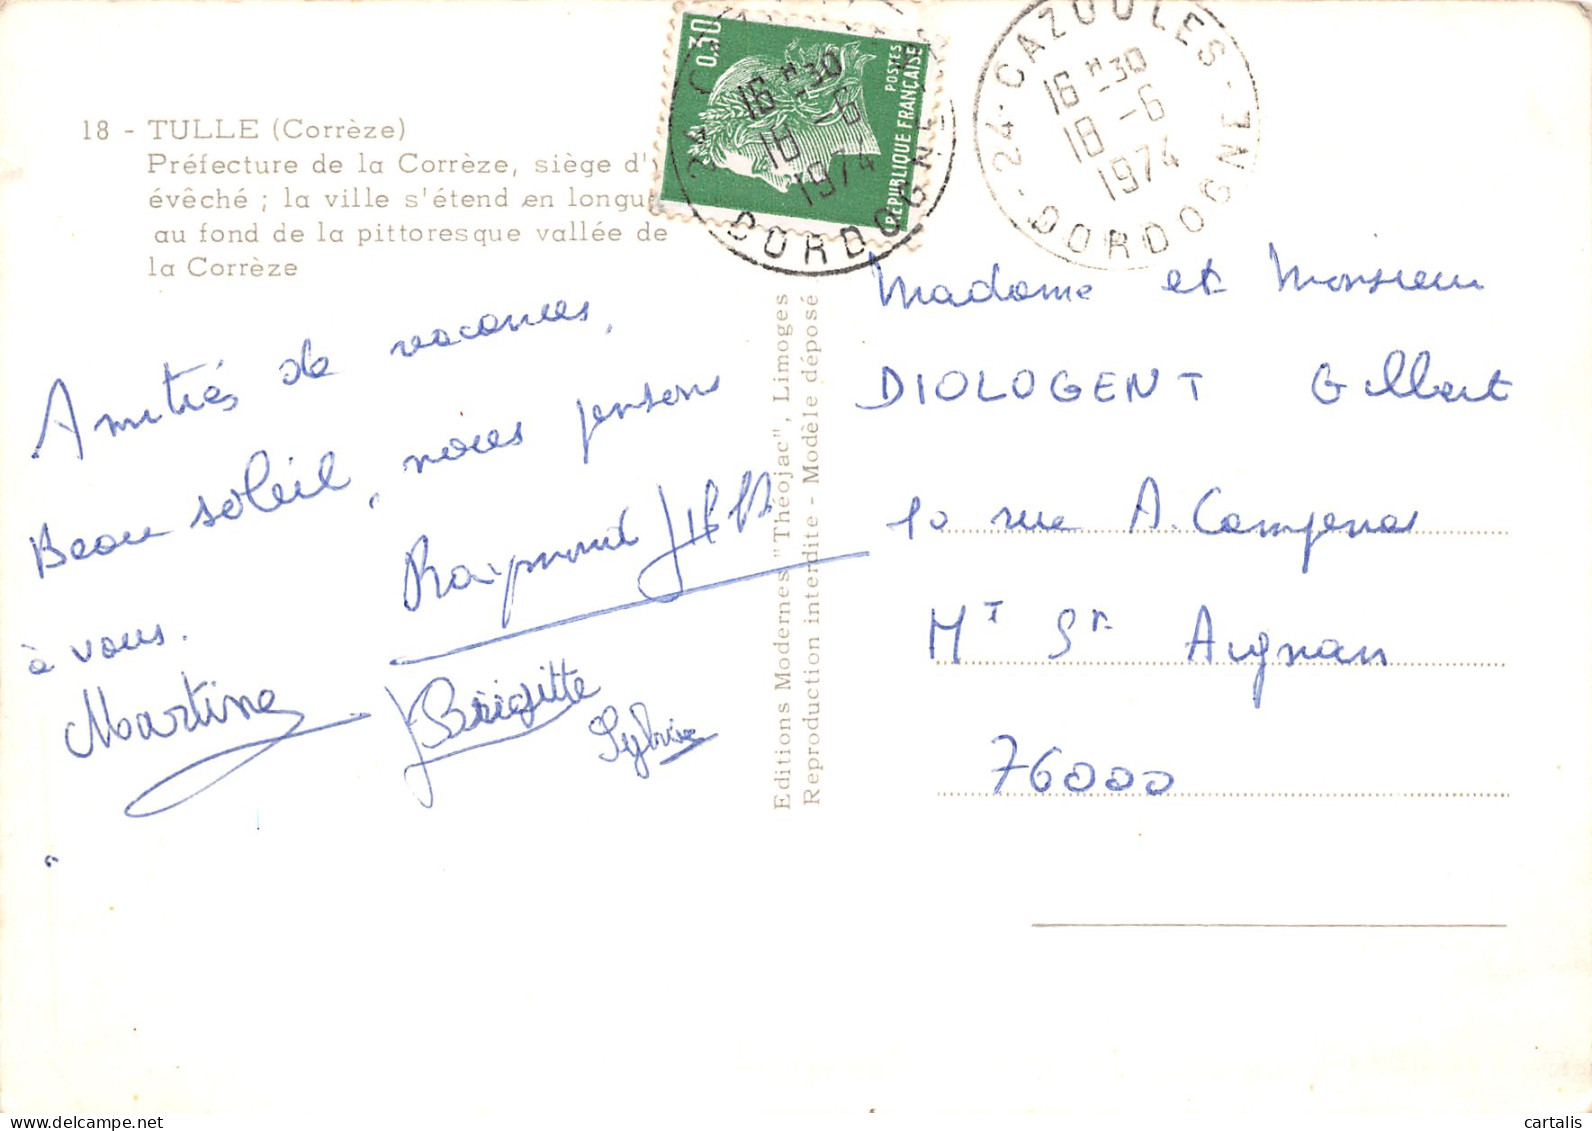 18 - TULLE (Corrèze)
Préfecture de la Corrèze, siège d'
évêché ; la ville s'étend en longu
au fond de la pittoresque vallée de
la Corrèze
0,30
POSTES
REPUBLIQUE FRANÇAISE
24
16 H 30
18 -6
1974
DORDOGNE
24 - CAZOULES - DORDOGNE
16 H 30
18 -6
1974
Amitiés de vacances,
Beau soleil, nous pensons
à vous.
Raymond
Martine
Brigitte
Sylvie
Editions Modernes "Théojac", Limoges
Reproduction interdite - Modèle déposé
Madame et Monsieur
DIOLOGENT Gilbert
10 rue A.
MT St Aignan
76000
cartalis